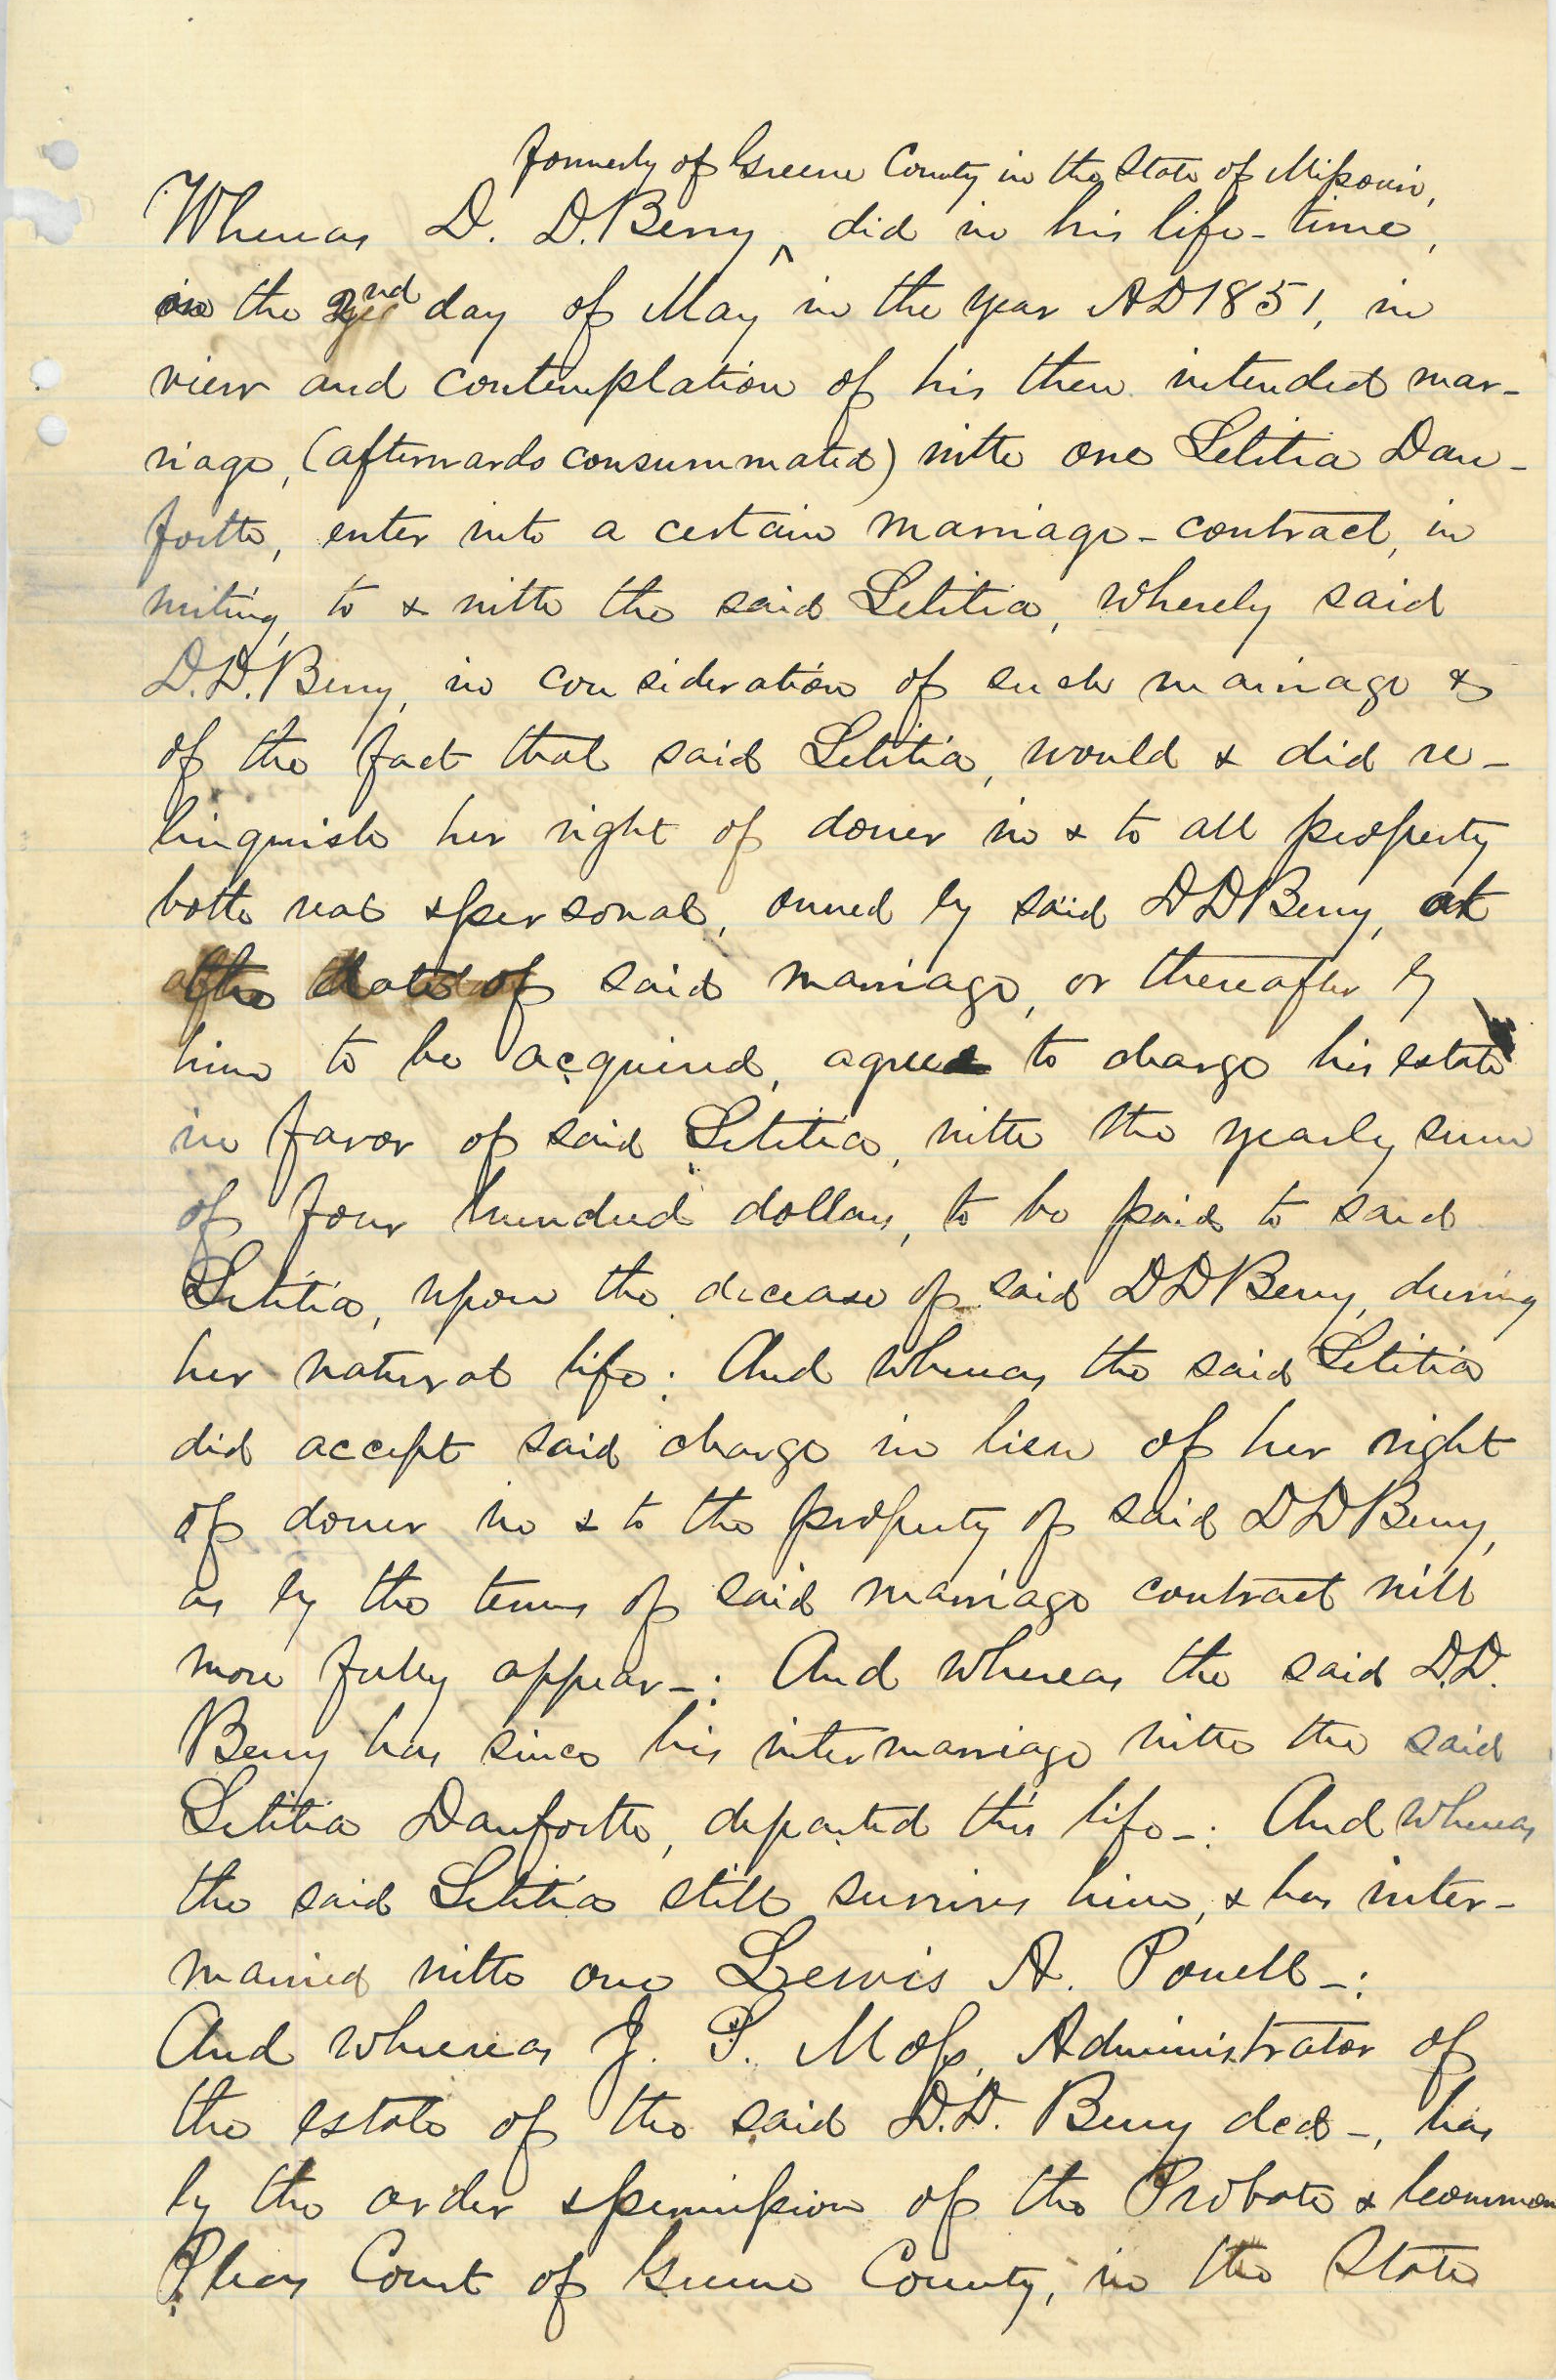 formerly of Greene County in the State of Missouri,
Whereas D. D. Berry ^ did in his life-time,
on the 2nd day of May in the year AD 1851, in
view and contemplation of his then intended mar-
riage, (afterwards consummated) with one Letitia Dan-
forth, enter into a certain marriage-contract, in
writing, to & with the said Letitia, whereby said
D.D. Berry, in consideration of such marriage &
of the fact that said Letitia, would & did re-
linquish her right of dower in & to all property
both real & personal, owned by said DD Berry, at
the date of said marriage, or thereafter by
him to be acquired, agree to charge his estate
in favor of said Letitia, with the yearly sum
of four hundred dollars, to be paid to said
Letitia, upon the decease of said DD Berry, during
her natural life: And whereas the said Letitia
did accept said charge in lieu of her right
of dower in & to the property of said DD Berry,
as by the terms of said marriage contract will
more fully appear-: And whereas the said D.D.
Berry has since his intermarriage with the said
Letitia Danforth, departed this life-: And whereas
the said Letitia still survives him, & has inter-
married with one Lewis A. Powell-:
And whereas J. S. Moss, Administrator of
the estate of the said D.D. Berry decd-, has
by the order & permission of the Probate & Common
Pleas Court of Greene County, in the State